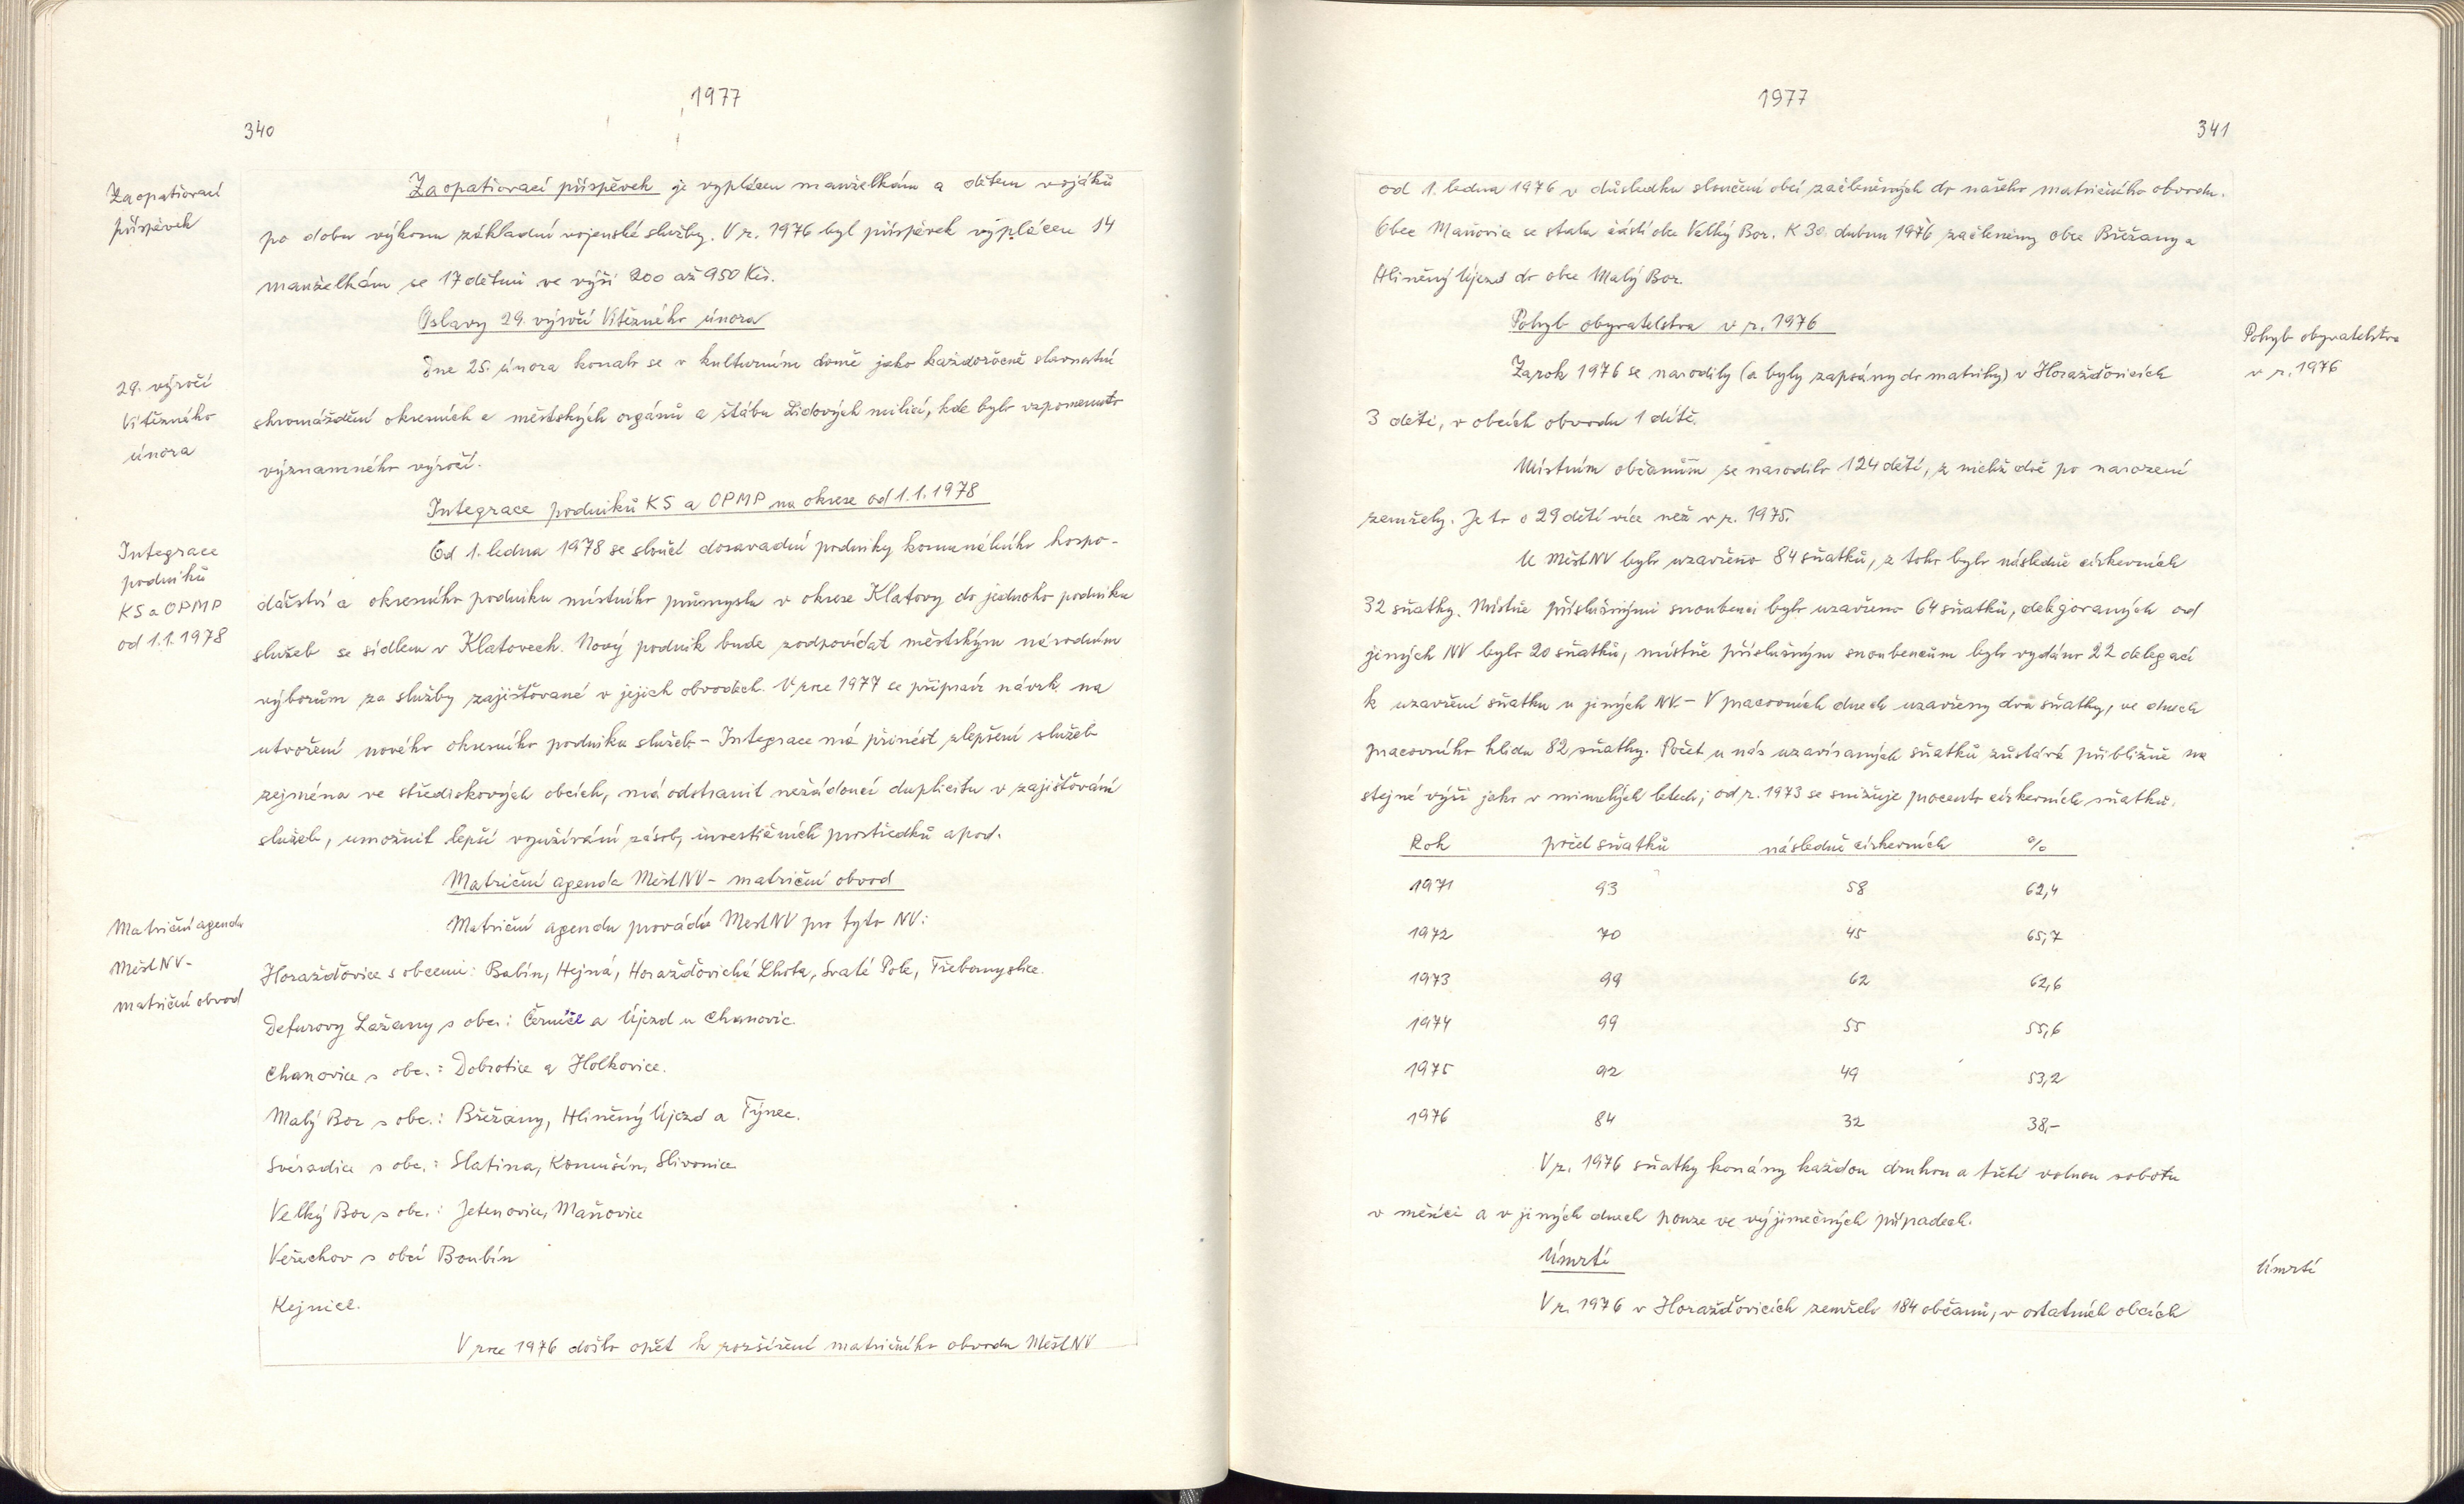 1977
340
Zaopatřovací
příspěvek
Zaopatřovací příspěvek je vyplácen manželkám a dětem vojáků
po dobu výkonu základní vojenské služby. V r. 1976 byl příspěvek vyplácen 14
manželkám se 17 dětmi ve výši 200 až 950 Kčs.
Oslavy 29. výročí Vítězného února
29. výročí
Vítězného
února
Dne 25. února konalo se v kulturním domě jako každoročně slavnostní
shromáždění okresních a městských orgánů a štábu Lidových milicí, kde bylo vzpomenuto
významného výročí.
Integrace podniků KS a OPMP na okrese od 1.1.1978
Integrace
podniků
KS a OPMP
od 1.1.1978
Od 1. ledna 1978 se sloučí dosavadní podniky komunálního hospo-
dářství a okresního podniku místního průmyslu v okrese Klatovy do jednoho podniku
služeb se sídlem v Klatovech. Nový podnik bude zodpovídat městským národním
výborům za služby zajišťované v jejich obvodech. V roce 1977 se připraví návrh na
utvoření nového okresního podniku služeb - Integrace má přinést zlepšení služeb
zejména ve střediskových obcích, má odstranit nežádoucí duplicitu v zajišťování
služeb, umožnit lepší využívání zásob, investičních prostředků apod.
Matriční agenda MěstNV - matriční obvod
Matriční agenda
MěstNV-
matriční obvod
Matriční agendu provádí MěstNV pro tyto NV:
Horažďovice s obcemi: Babín, Hejná, Horažďovická Lhota, Svaté Pole, Třebomyslice.
Defurovy Lažany s obc.: Černíč a Újezd u Chanovic.
Chanovice s obc.: Dobrotice a Holkovice.
Malý Bor s obc.: Břežany, Hliněný Újezd a Týnec.
Svéradice s obc.: Slatina, Komušín, Slivonice
Velký Bor s obc.: Jetenovice, Maňovice
Veřechov s obcí Boubín
Kejnice.
V roce 1976 došlo opět k rozšíření matričního obvodu MěstNV
1977
341
od 1. ledna 1976 v důsledku sloučení obcí začleněných do našeho matričního obvodu.
Obec Maňovice se stala částí obce Velký Bor. K 30. dubnu 1976 začleněny obce Břežany a
Hliněný Újezd do obce Malý Bor.
Pohyb obyvatelstva v r. 1976
Pohyb obyvatelstva
v r. 1976
Za rok 1976 se narodily (a byly zapsány do matriky) v Horažďovicích
3 děti, v obcích obvodu 1 dítě.
Místním občanům se narodilo 124 dětí, z nichž dvě po narození
zemřely. Je to o 29 dětí více než v r. 1975.
U MěstNV bylo uzavřeno 84 sňatků, z toho bylo následně církevních
32 sňatky. Místně příslušnými snoubenci bylo uzavřeno 64 sňatků, delegovaných od
jiných NV bylo 20 sňatků, místně příslušným snoubencům bylo vydáno 22 delegací
k uzavření sňatku u jiných NV. - V pracovních dnech uzavřeny dva sňatky, ve dnech
pracovního klidu 82 sňatky. Počet u nás uzavíraných sňatků zůstává přibližně na
stejné výši jako v minulých letech; od r. 1973 se snižuje procento církevních sňatků.
Rok počet sňatků následně církevních %
1971 93 58 62,4
1972 70 45 65,7
1973 99 62 62,6
1974 99 55 55,6
1975 92 49 53,2
1976 84 32 38,-
V r. 1976 sňatky konány každou druhou a třetí volnou sobotu
v měsíci a v jiných dnech pouze ve výjimečných případech.
Úmrtí
Úmrtí
V r. 1976 v Horažďovicích zemřelo 184 občanů, v ostatních obcích